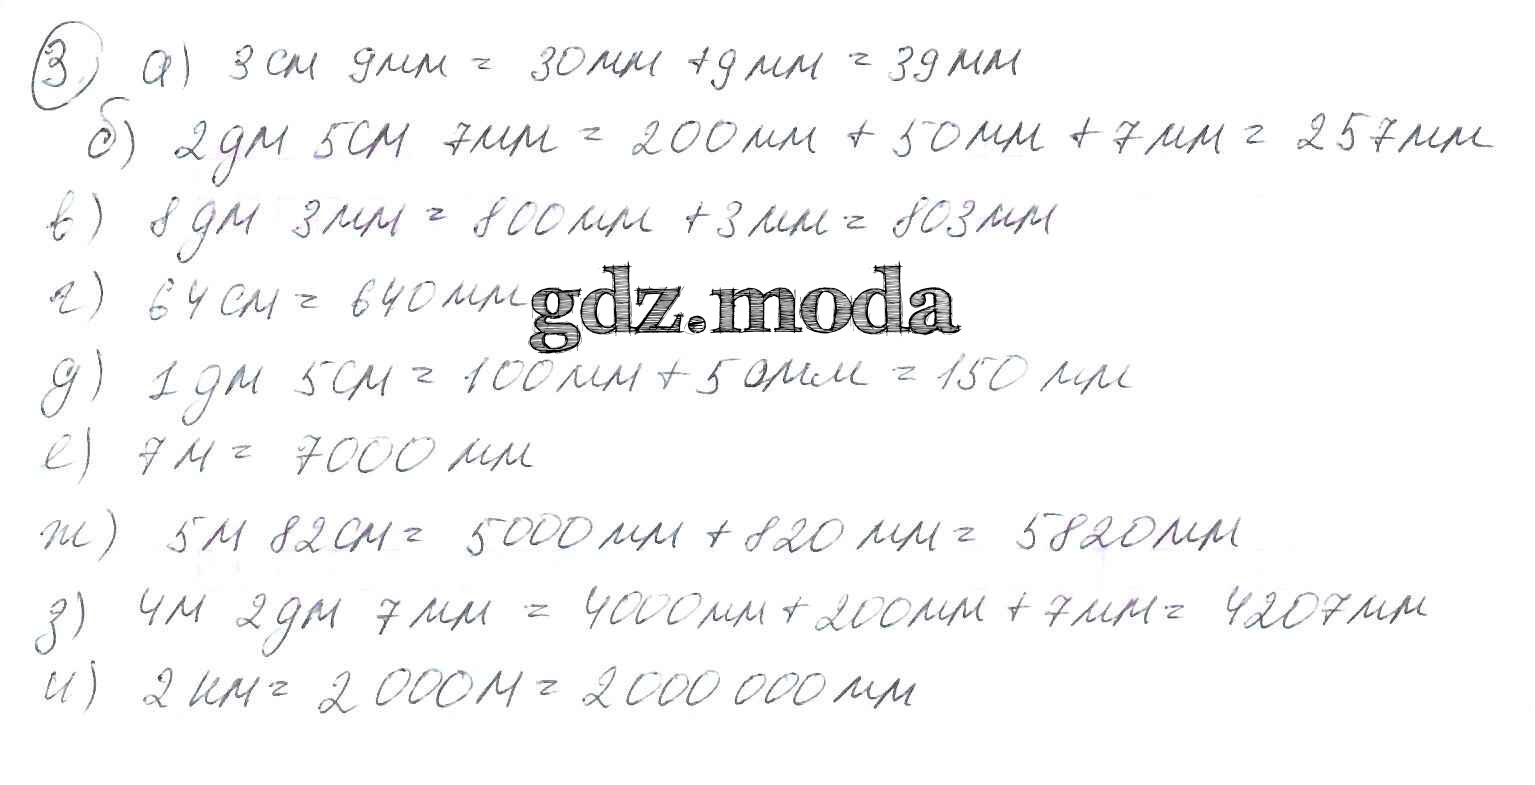 3) а) 3см 9мм = 30мм + 9мм = 39мм
б) 2дм 5см 7мм = 200мм + 50мм + 7мм = 257мм
в) 8дм 3мм = 800мм + 3мм = 803мм
г) 64см = 640мм
gdz.moda
д) 1дм 5см = 100мм + 50мм = 150мм
е) 7м = 7000мм
ж) 5м 82см = 5000мм + 820мм = 5820мм
з) 4м 2дм 7мм = 4000мм + 200мм + 7мм = 4207мм
и) 2км = 2000м = 2000 000мм